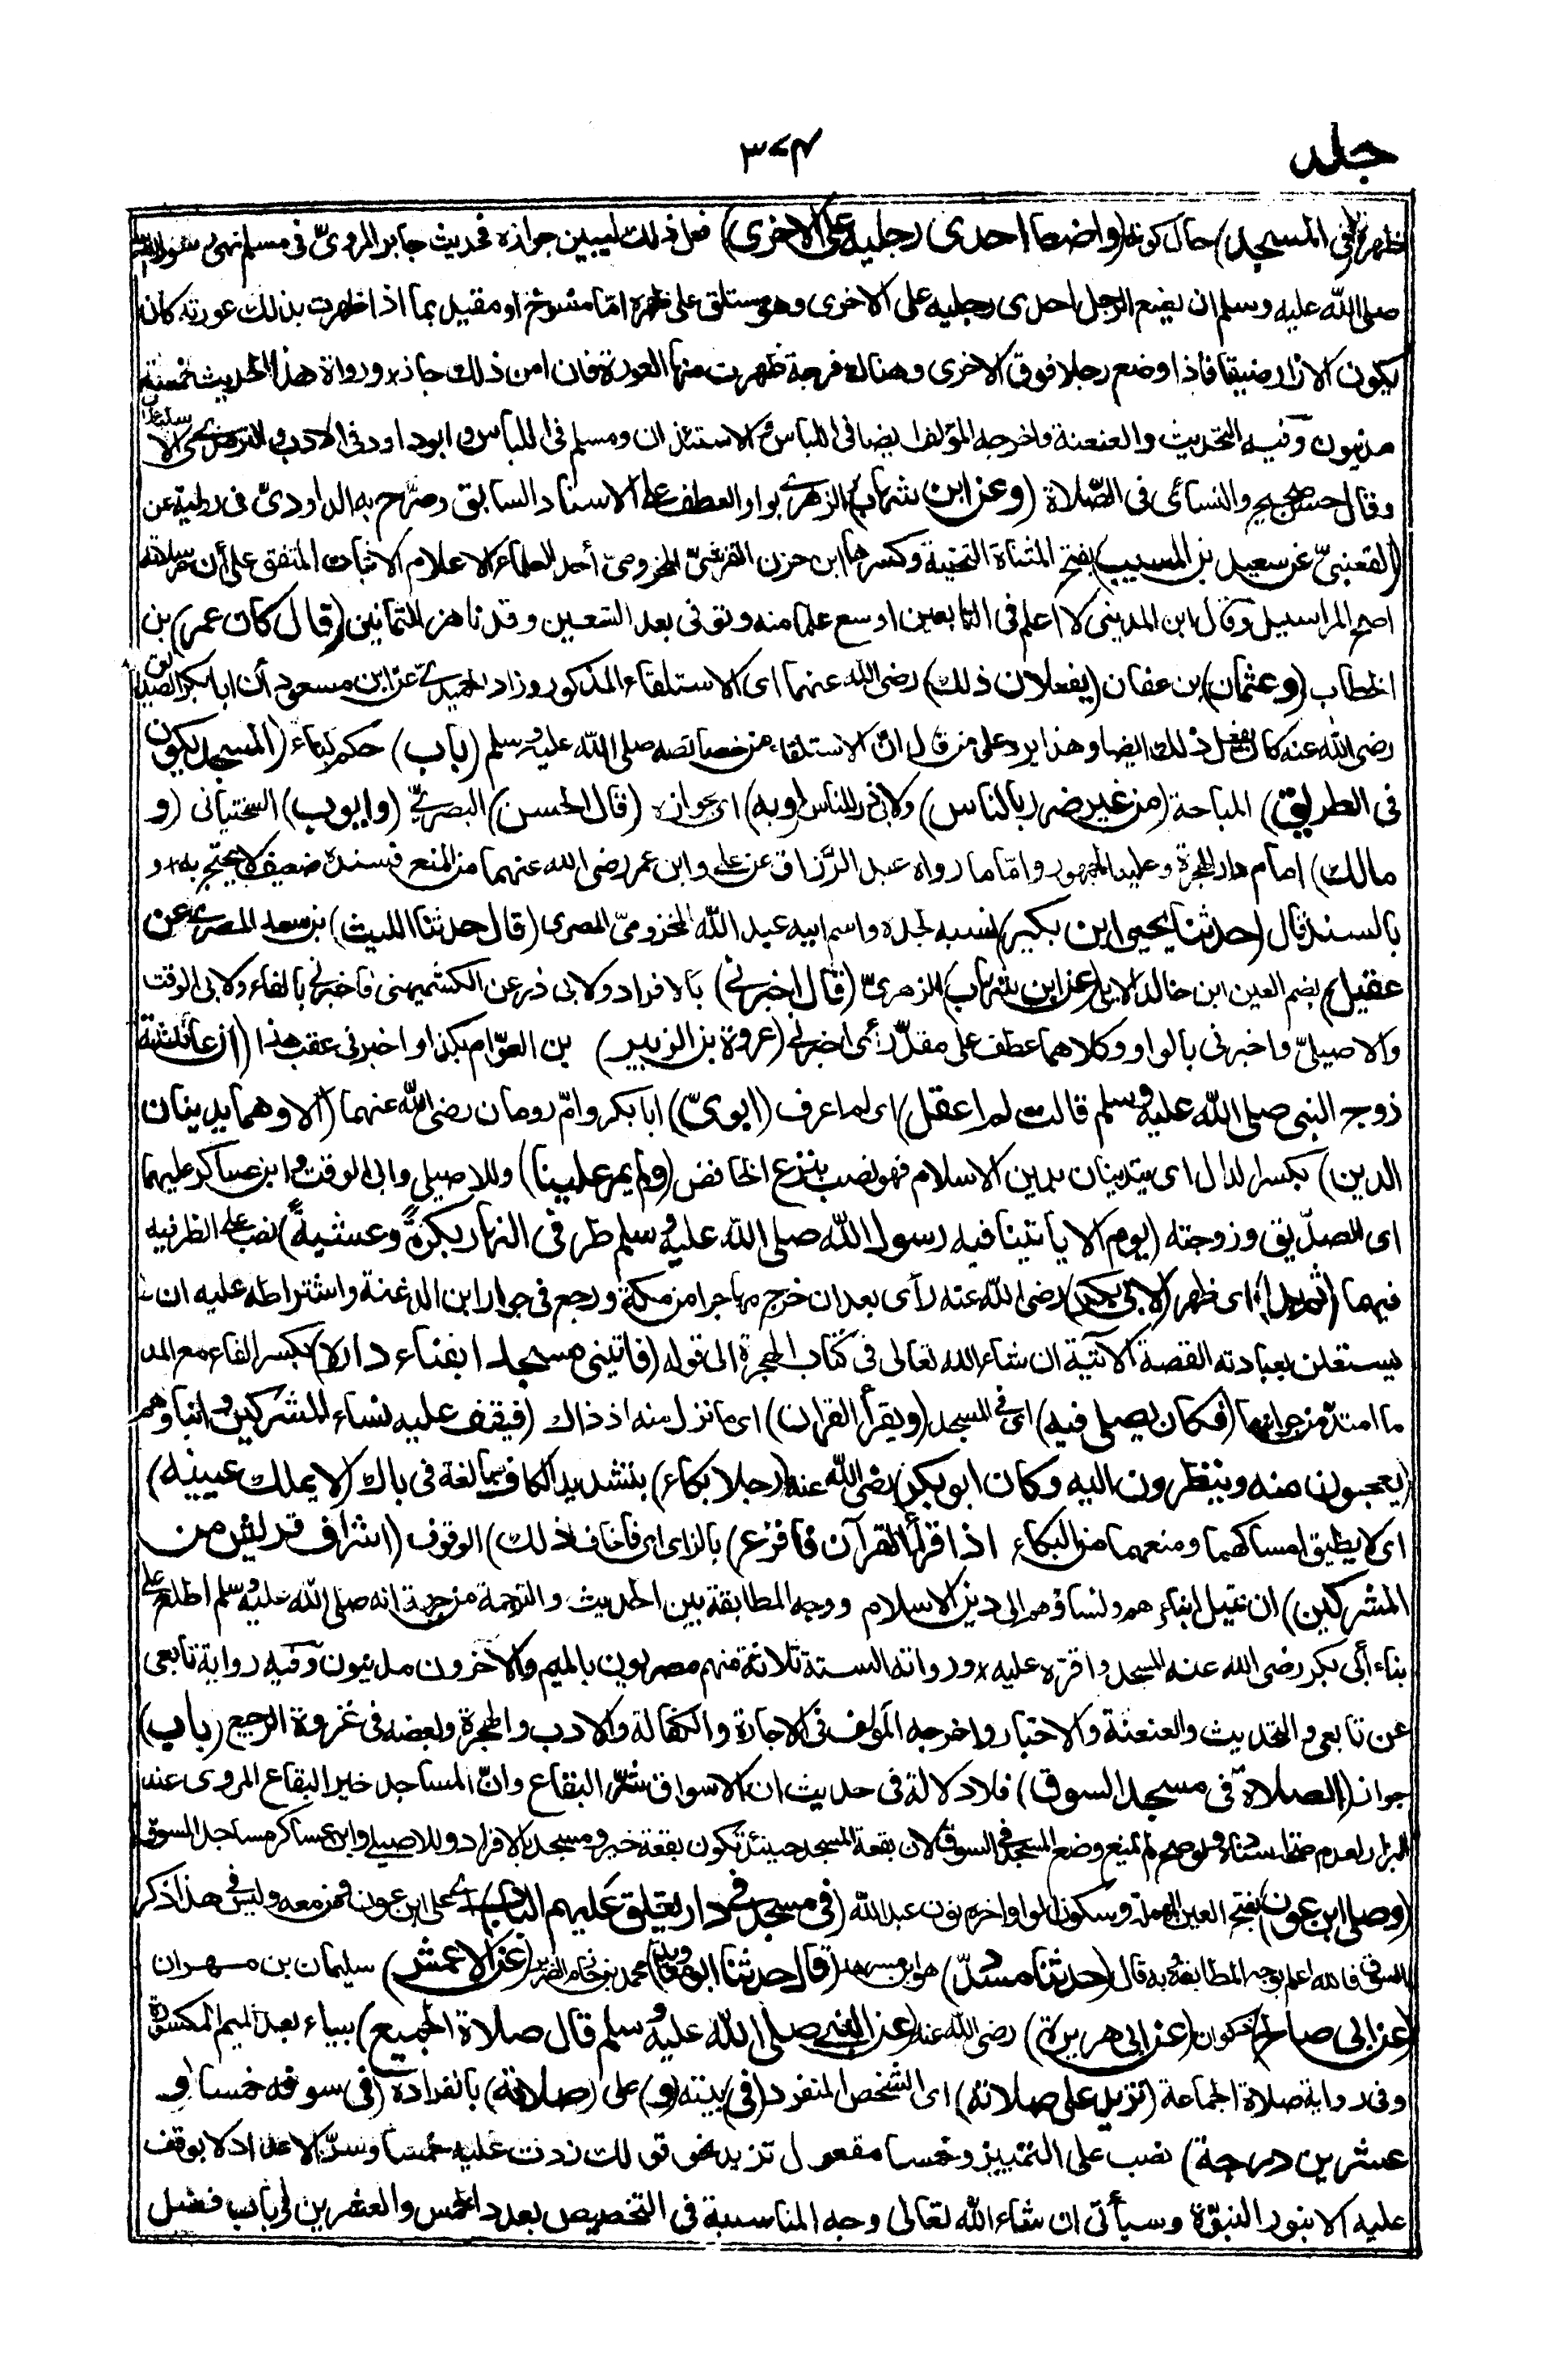 جلد
٣٧٤
ظهره (في المسجد) حال كونه (واضعا احدى رجليه على الاخرى) فعل ذلك ليبين جوازه فحديث جابر المروىّ فى مسلم نهى رسول الله
صلى الله عليه وسلم ان يضع الرجل احدى رجليه على الاخرى وهو مستلق على ظهره امّا منسوخ او مقيد بما اذا ظهرت بذلك عورته كان
يكون الازار ضيقا فاذا وضع رجلا فوق الاخرى وهناك فرجة ظهرت منها العورة فان امن ذلك جاز ورواة هذا الحديث خمسة
مدنيون وفيه التحديث والعنعنة واخرجه المؤلف ايضا فى اللباس والاستئذان ومسلم فى اللباس وابو داود فى الادب والترمذى فى الا
ستئذان
وقال حسن صحيح والنسائى فى الصّلاة (وعن ابن شهاب) الزهرى بواو العطف على الاسناد السابق وصرّح به الداودىّ فى روايته عن
(القعنبىّ عن سعيد بن المسيب) بفتح المثناة التحتية وكسرها ابن حزن القرشىّ المخزومىّ أحد العلماء الاعلام الاثبات المتفق على أن مرسلاته
اصح المراسيل وقال ابن المدينى لا اعلم فى التابعين اوسع علما منه وتوفى بعد التسعين وقد ناهز الثمانين (قال كان عمر) بن
الخطاب (وعثمان) بن عفان (يفعلان ذلك) رضى الله عنهما اى الاستلقاء المذكور وزاد الحميدى عن ابن مسعود أن ابا بكر الصديق
رضى الله عنه كان يفعل ذلك ايضا وهذا يرد على من قال انّ الاستلقاء من خصائصه صلى الله عليه وسلم (باب) حكم بناء (المسجد يكون
فى الطريق) المباحة (من غير ضرر بالناس) ولابى ذر للناس (وبه) اى بجوازه (قال الحسن) البصرىّ (وايوب) السختيانى (و
مالك) امام دار الهجرة وعليه الجمهور وامّا ما رواه عبد الرّزاق عن على وابن عمر رضى الله عنهما من المنع فسنده ضعيف لا يحتج به و
بالسند قال (حدثنا يحيى ابن بكير) نسبه لجده واسم ابيه عبد الله المخزومىّ المصرى (قال حدثنا الليث) بن سعد المصرى (عن
عقيل) بضم العين ابن خالد الايلى (عن ابن شهاب) الزهرىّ (قال اخبرنى) بالافراد ولابى ذر عن الكشميهنى فاخبرنى بالفاء ولابى الوقت
والاصيلىّ واخبرنى بالواو وكلاهما عطف على مقدّر أى اخبرنى (عروة بن الزبير) بن العوّام بكذا واخبرنى عقب هذا (أن عائشة
زوج النبى صلى الله عليه وسلم قالت لم اعقل) اى لم اعرف (ابوىّ) ابا بكر وامّ رومان رضى الله عنهما (الا وهما يدينان
الدين) بكسر الدال اى يتدينان بدين الاسلام فهو نصب بنزع الخافض (ولم يمر علينا) وللاصيلى وابى الوقت وابن عساكر عليهما
اى الصدّيق وزوجته (يوم الا ياتينا فيه رسول الله صلى الله عليه وسلم طرفى النهار بكرةً وعشيةً) نصب على الظرفيه
فيهما (ثم بدا) اى ظهر (لابى بكر) رضى الله عنه رأى بعد ان خرج مهاجرا من مكة ورجع فى جوار ابن الدغنة واشتراطه عليه ان لا
يستعلن بعبادته القصة الآتية ان شاء الله تعالى فى كتاب الهجرة الى قوله (فابتنى مسجدا بفناء داره) بكسر الفاء مع المد
ما امتدّ من جوانبها (فكان يصلى فيه) اى فى المسجد (ويقرأ القران) اى ما نزل منه اذ ذاك (فيقف عليه نساء المشركين وابناؤهم
يعجبون منه وينظرون اليه وكان ابو بكر) رضى الله عنه (رجلا بكاء) بتشديد الكاف مبالغة فى باك (لا يملك عينيه)
اى لا يطيق امساكهما ومنعهما من البكاء اذا قرأ القرآن فافزع) بالزاى اى فاخاف (ذلك) الوقوف (اشراف قريش من
المشركين) ان تميل ابناؤهم ونساؤهم الى دين الاسلام ووجه المطابقة بين الحديث والترجمة من جهة انه صلى الله عليه وسلم اطلع على
بناء أبى بكر رضى الله عنه المسجد واقرّه عليه ورواته الستة ثلاثة منهم مصريون بالميم والاخرون مدنيون وفيه رواية تابعى
عن تابعى والتحديث والعنعنة والاخبار واخرجه المؤلف فى الاجارة والكفالة والادب والهجرة وبعضه فى غزوة الرجيع (باب)
جواز (الصلاة فى مسجد السوق) فلا دلالة فى حديث ان الاسواق شرّ البقاع وانّ المساجد خير البقاع المروى عند
البزار لعدم صحة اسناده ولو صح لم يمنع وضع المسجد فى السوق لان بقعة المسجد حينئذ تكون بقعة خير ومسجد بالافراد وللاصيلى وابن عساكر مساجد السوق
(وصلى ابن عون) بفتح العين المهملة وسكون الواو واخره نون عبد الله (فى مسجد فى دار يغلق عليهم الباب) اى على ابن عون ومن معه وليس فى هذا ذكر
السوق فالله اعلم بوجه المطابقة وبه قال (حدثنا مسدّد) هو ابن مسرهد (قال حدثنا ابو معاوية) محمد بن خازم الضرير (عن الاعمش) سليمان بن مهران
(عن ابى صالح) ذكوان (عن ابى هريرة) رضى الله عنه (عن النبى صلى الله عليه وسلم قال صلاة الجميع) بياء بعد الميم المكسورة
وفى رواية صلاة الجماعة (تزيد على صلاته) اى الشخص المنفرد (فى) بيته (و) على (صلاته) بانفراده (فى سوقه خمسا و
عشرين درجة) نصب على التمييز وخمسا مفعول تزيد نحو قولك زدت عليه خمسا وسرّ الاعداد لا يوقف
عليه الا بنور النبوّة وسيأتى ان شاء الله تعالى وجه المناسبة فى التخصيص بعدد الخمس والعشرين فى باب فضل